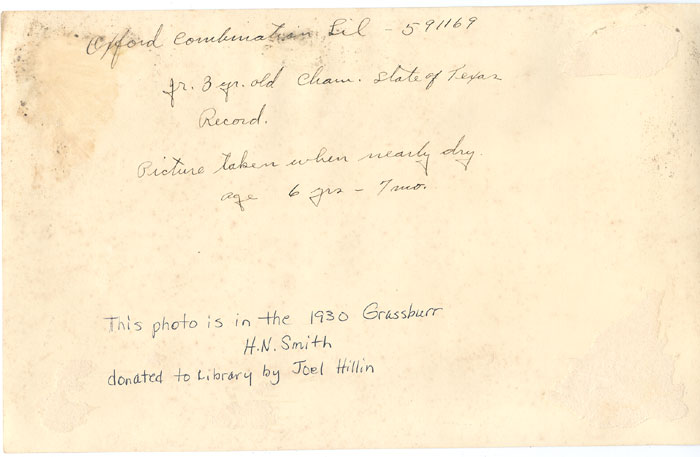 Oxford Combination Lil - 591169
Jr. 3 yr. old Cham. State of Texas
Record.
Picture taken when nearly dry.
age 6 yrs - 7 mo.
This photo is in the 1930 Grassburr
H.N. Smith
donated to Library by Joel Hillin